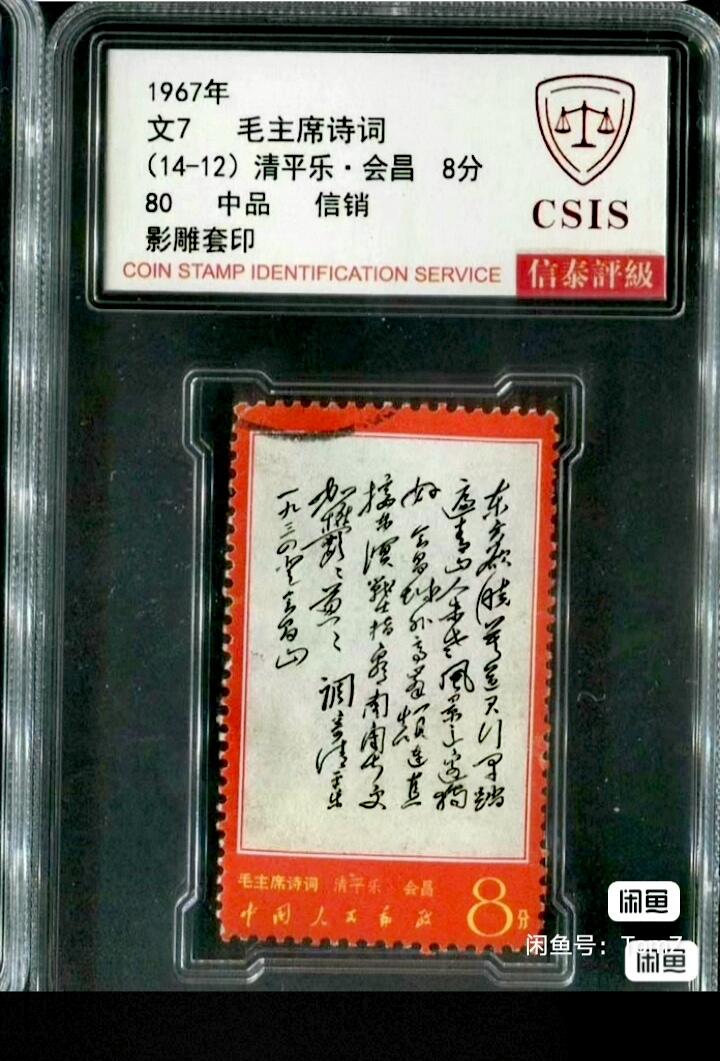 1967年
文7 毛主席诗词
(14-12) 清平乐·会昌 8分
80 中品 信销
影雕套印
COIN STAMP IDENTIFICATION SERVICE
CSIS
信泰評級
东方欲晓莫道君行早踏
遍青山人未老风景这边独
好 会昌城外高峰颠连直
接东溟战士指看南粤更
加鬱〻葱〻 调寄清平乐
一九三四登会昌山
毛主席诗词 清平乐 会昌
中国人民邮政
8分
闲鱼
闲鱼号: Tom7
闲鱼